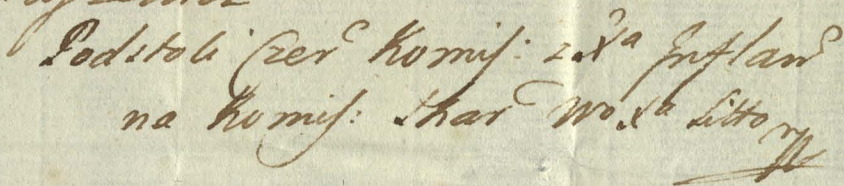 Podstoli Czer͠c Komiſ: z Xᵃ Inflanᶜ
na Komiſ: Skarᶜ Wo Xᵃ Litto